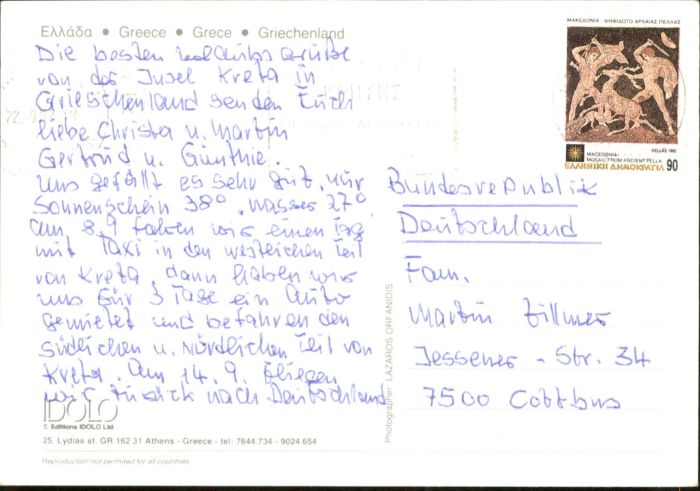 Ελλάδα • Greece • Grece • Griechenland
Die besten Urlaubsgrüße
von der Insel Kreta in
Grieschenland senden Euch
liebe Christa u. Martin
Gertrud u. Günthie.
Uns gefällt es sehr gut, nur
Sonnenschein 38°, Wasser 27°
am 8.9 fahren wir einen Tag
mit Taxi in den westlichen Teil
von Kreta, dann haben wir
uns für 3 Tage ein Auto
gemietet und befahren den
südlichen u. nördlichen Teil von
Kreta. Am 14. 9. fliegen
wir zurück nach Deutschland
IDOLO
© Editions IDOLO Ltd.
25, Lydias st. GR 162 31 Athens - Greece - tel: 7644.734 - 9024.654
Reproduction not permited for all countries
Photographer: LAZAROS ORFANIDIS
ΜΑΚΕΔΟΝΙΑ · ΨΗΦΙΔΩΤΟ ΑΡΧΑΙΑΣ ΠΕΛΛΑΣ
HELLAS 1992
MACEDONIA:
MOSAIC FROM ANCIENT PELLA
ΕΛΛΗΝΙΚΗ ΔΗΜΟΚΡΑΤΙΑ 90
Bundesrepublik
Deutschland
Fam.
Martin Zillmer
Jessener - Str. 34
7500 Cottbus